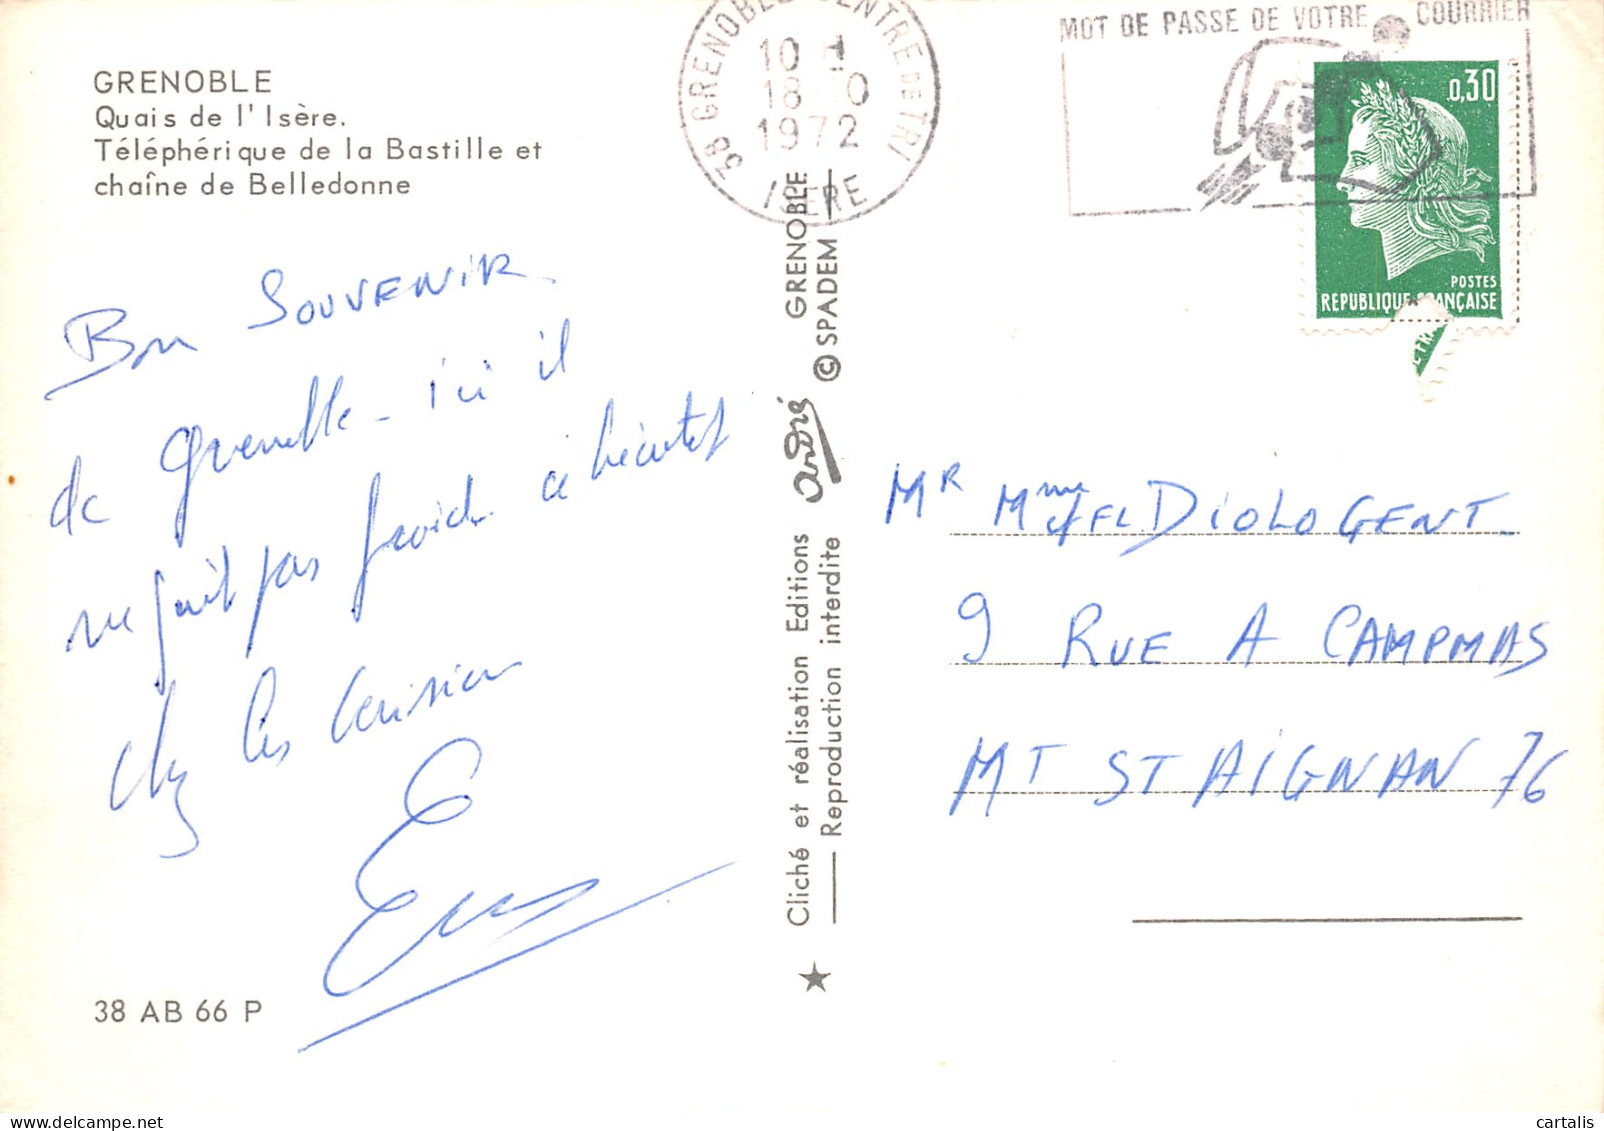 GRENOBLE
Quais de l' Isère.
Téléphérique de la Bastille et
chaîne de Belledonne
Bon SOUVENIR
de Grenoble - ici il
ne fait pas froid.
chez les
38 AB 66 P
38 GRENOBLE CENTRE DE TRI
10
18 10
1972
ISERE
MOT DE PASSE DE VOTRE COURRIER
0,30
POSTES
REPUBLIQUE FRANÇAISE
Cliché et réalisation Editions andré GRENOBLE
Reproduction interdite © SPADEM
MR Mme DIOLOGENT.
9 RUE A CAMPMAS
MT ST AIGNAN 76
cartalis
delcampe.net